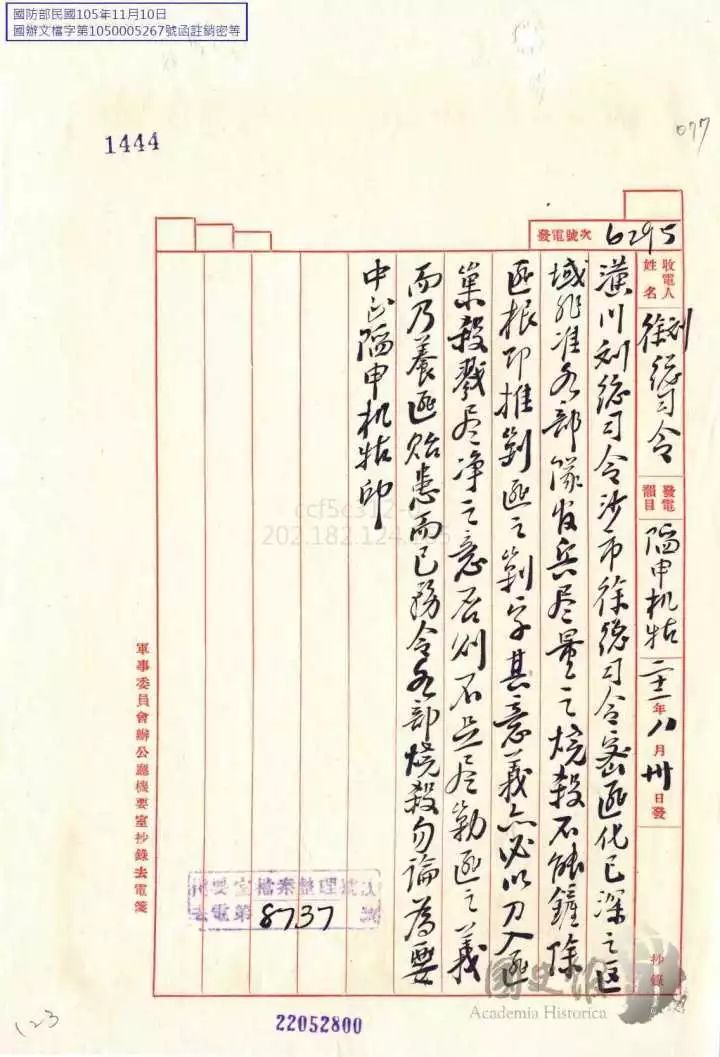 國防部民國105年11月10日
國辦文檔字第1050005267號函註銷密等
1444
077
發電號次 6295
收電人姓名 劉徐總司令 發電韻目 陷申机牯 二十一年八月卅日發 抄錄
潢川刘總司令沙市徐總司令密匪化已深之區
域非准各部隊發兵尽量之燒殺不能鏟除
匪根即推剿匪之剿字其意義亦必以刀入匪
巢殺戮尽净之意否则不足尽剿匪之義
而乃養匪贻患而已務令各部燒殺勿論為要
中正陷申机牯印
軍事委員會辦公廳機要室抄錄去電箋
機要室檔案整理號次
去電第8737號
ccf5c312-
202.182.124.
國史館
Academia Historica
123
22052800